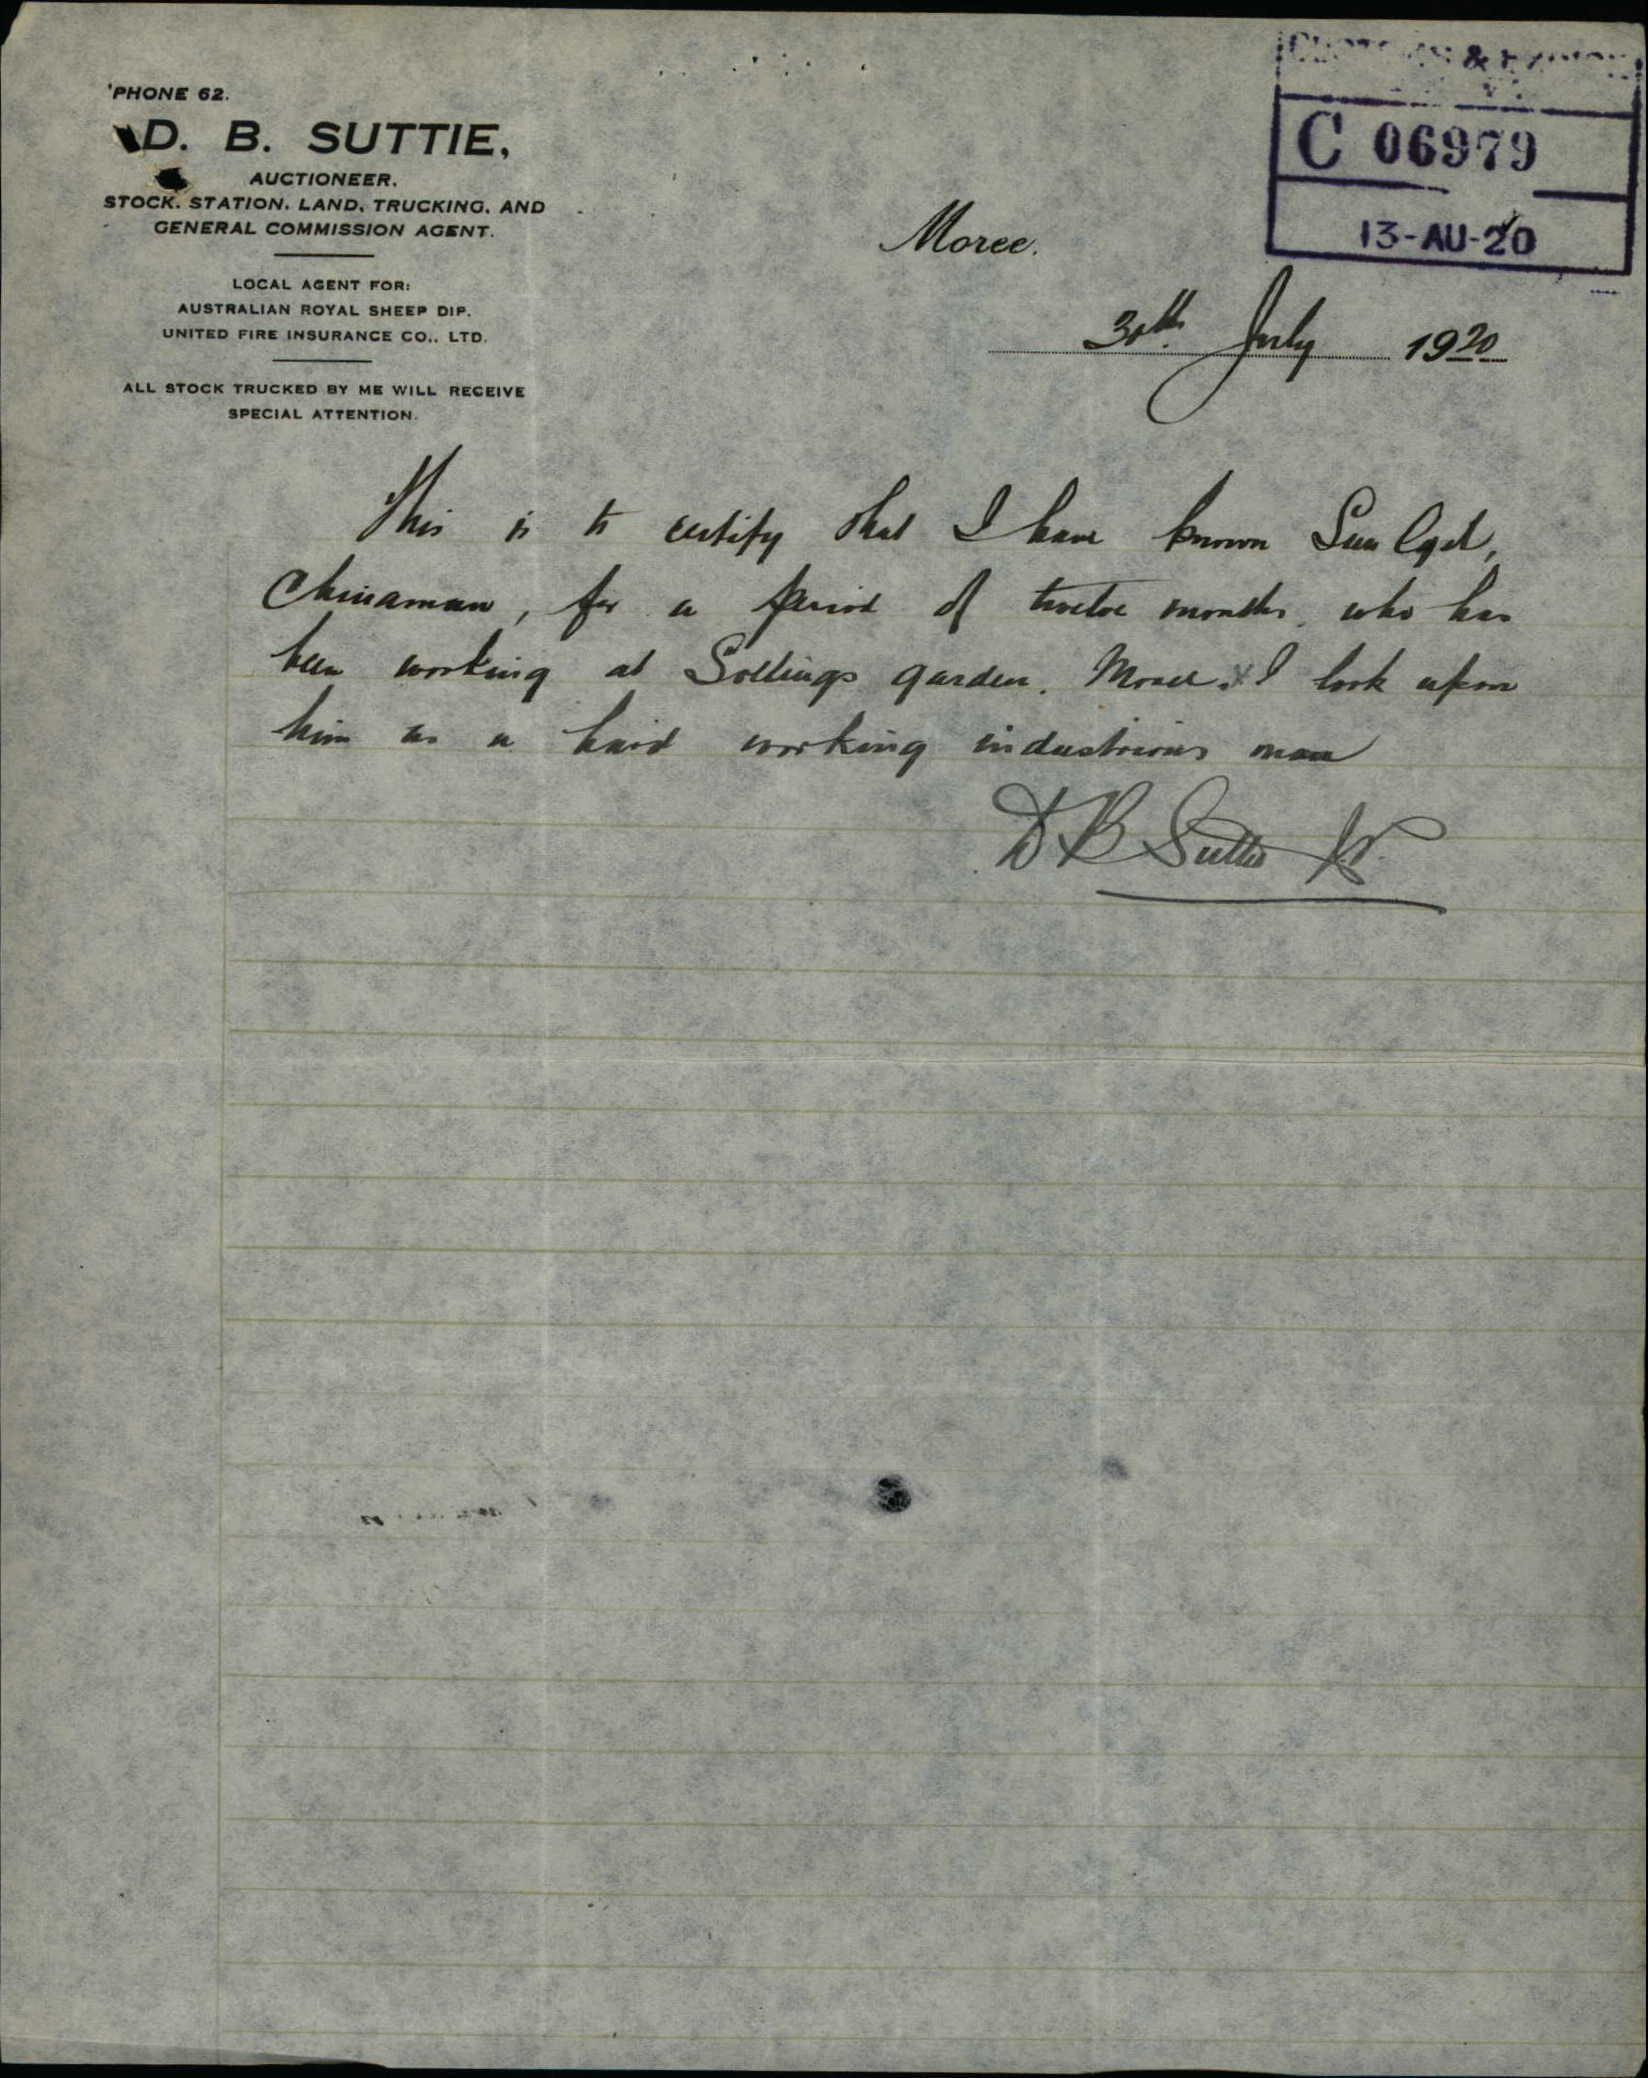 'PHONE 62.
D. B. SUTTIE,
AUCTIONEER.
STOCK, STATION, LAND, TRUCKING, AND
GENERAL COMMISSION AGENT.
LOCAL AGENT FOR:
AUSTRALIAN ROYAL SHEEP DIP.
UNITED FIRE INSURANCE CO., LTD.
ALL STOCK TRUCKED BY ME WILL RECEIVE
SPECIAL ATTENTION.
&
C 06979
13-AU-20
Moree.
30th July 1920
This is to certify that I have known Sun
Chinaman, for a period of twelve months, who has
been working at Sollings garden. Moree. I look upon
him as a hard working industrious man
D B Suttie J.P.